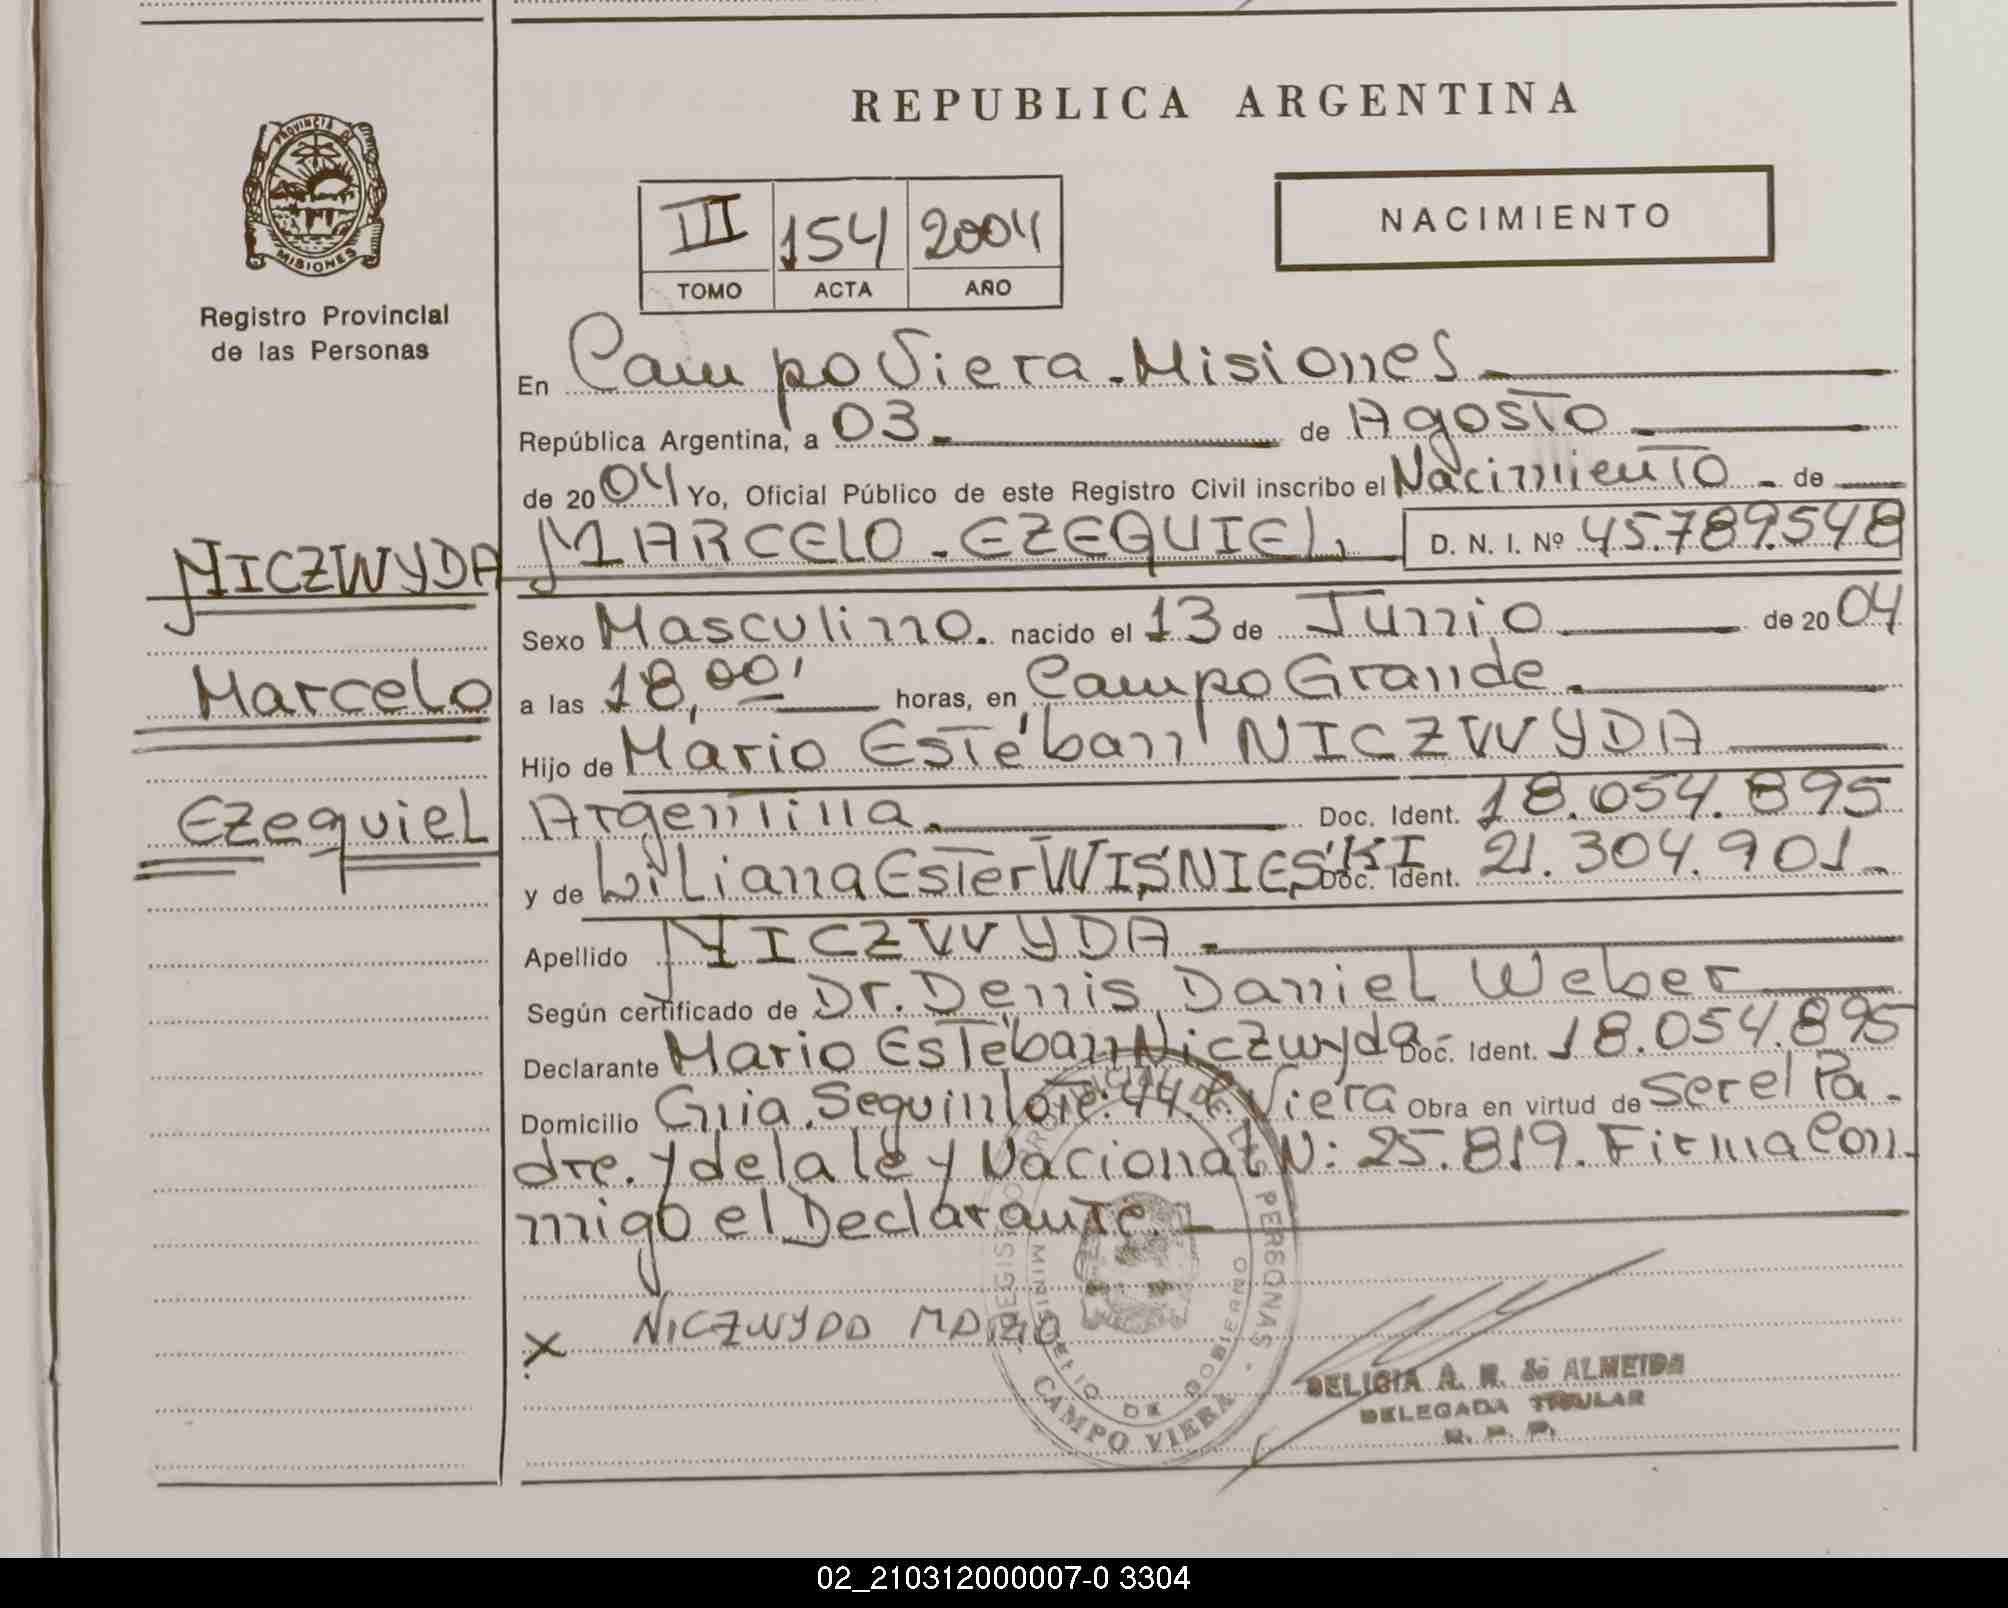 REPUBLICA ARGENTINA
PROVINCIA DE
MISIONES
Registro Provincial
de las Personas
III 154 2004
TOMO ACTA AÑO
NACIMIENTO
En Campo Viera - Misiones
República Argentina, a 03 de Agosto
de 2004 Yo, Oficial Público de este Registro Civil inscribo el Nacimiento - de
NICZWYDA
Marcelo
Ezequiel
MARCELO - EZEQUIEL D. N. I. Nº 45.789.548
Sexo Masculino. nacido el 13 de Junio de 2004
a las 18,00' horas, en Campo Grande.
Hijo de Mario Esteban NICZWYDA
Argentina. Doc. Ident. 18.054.895
y de Liliana Ester WISNIESKI Doc. Ident. 21.304.901-
Apellido NICZWYDA -
Según certificado de Dr. Dennis Daniel Weber
Declarante Mario Esteban Niczwyda - Doc. Ident. 18.054.895
Domicilio Guia. Seguin lote: 44. C. Viera Obra en virtud de ser el Pa-
dre. y de la ley Nacional N: 25.819. Firma Con-
migo el Declarante. -
X NICZWYDA MARIO
REGISTRO PROVINCIAL DE LAS PERSONAS - CAMPO VIERA -
MINISTERIO DE GOBIERNO
DELICIA A. R. de ALMEIDA
DELEGADA TITULAR
R. P. P.
02_210312000007-0 3304